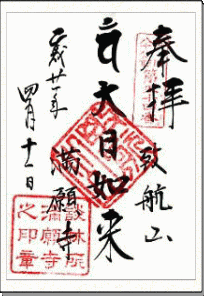 奉拝
致航山
大日如来
満願寺
平成廿一年
四月十一日
談林所
満願寺
之印章